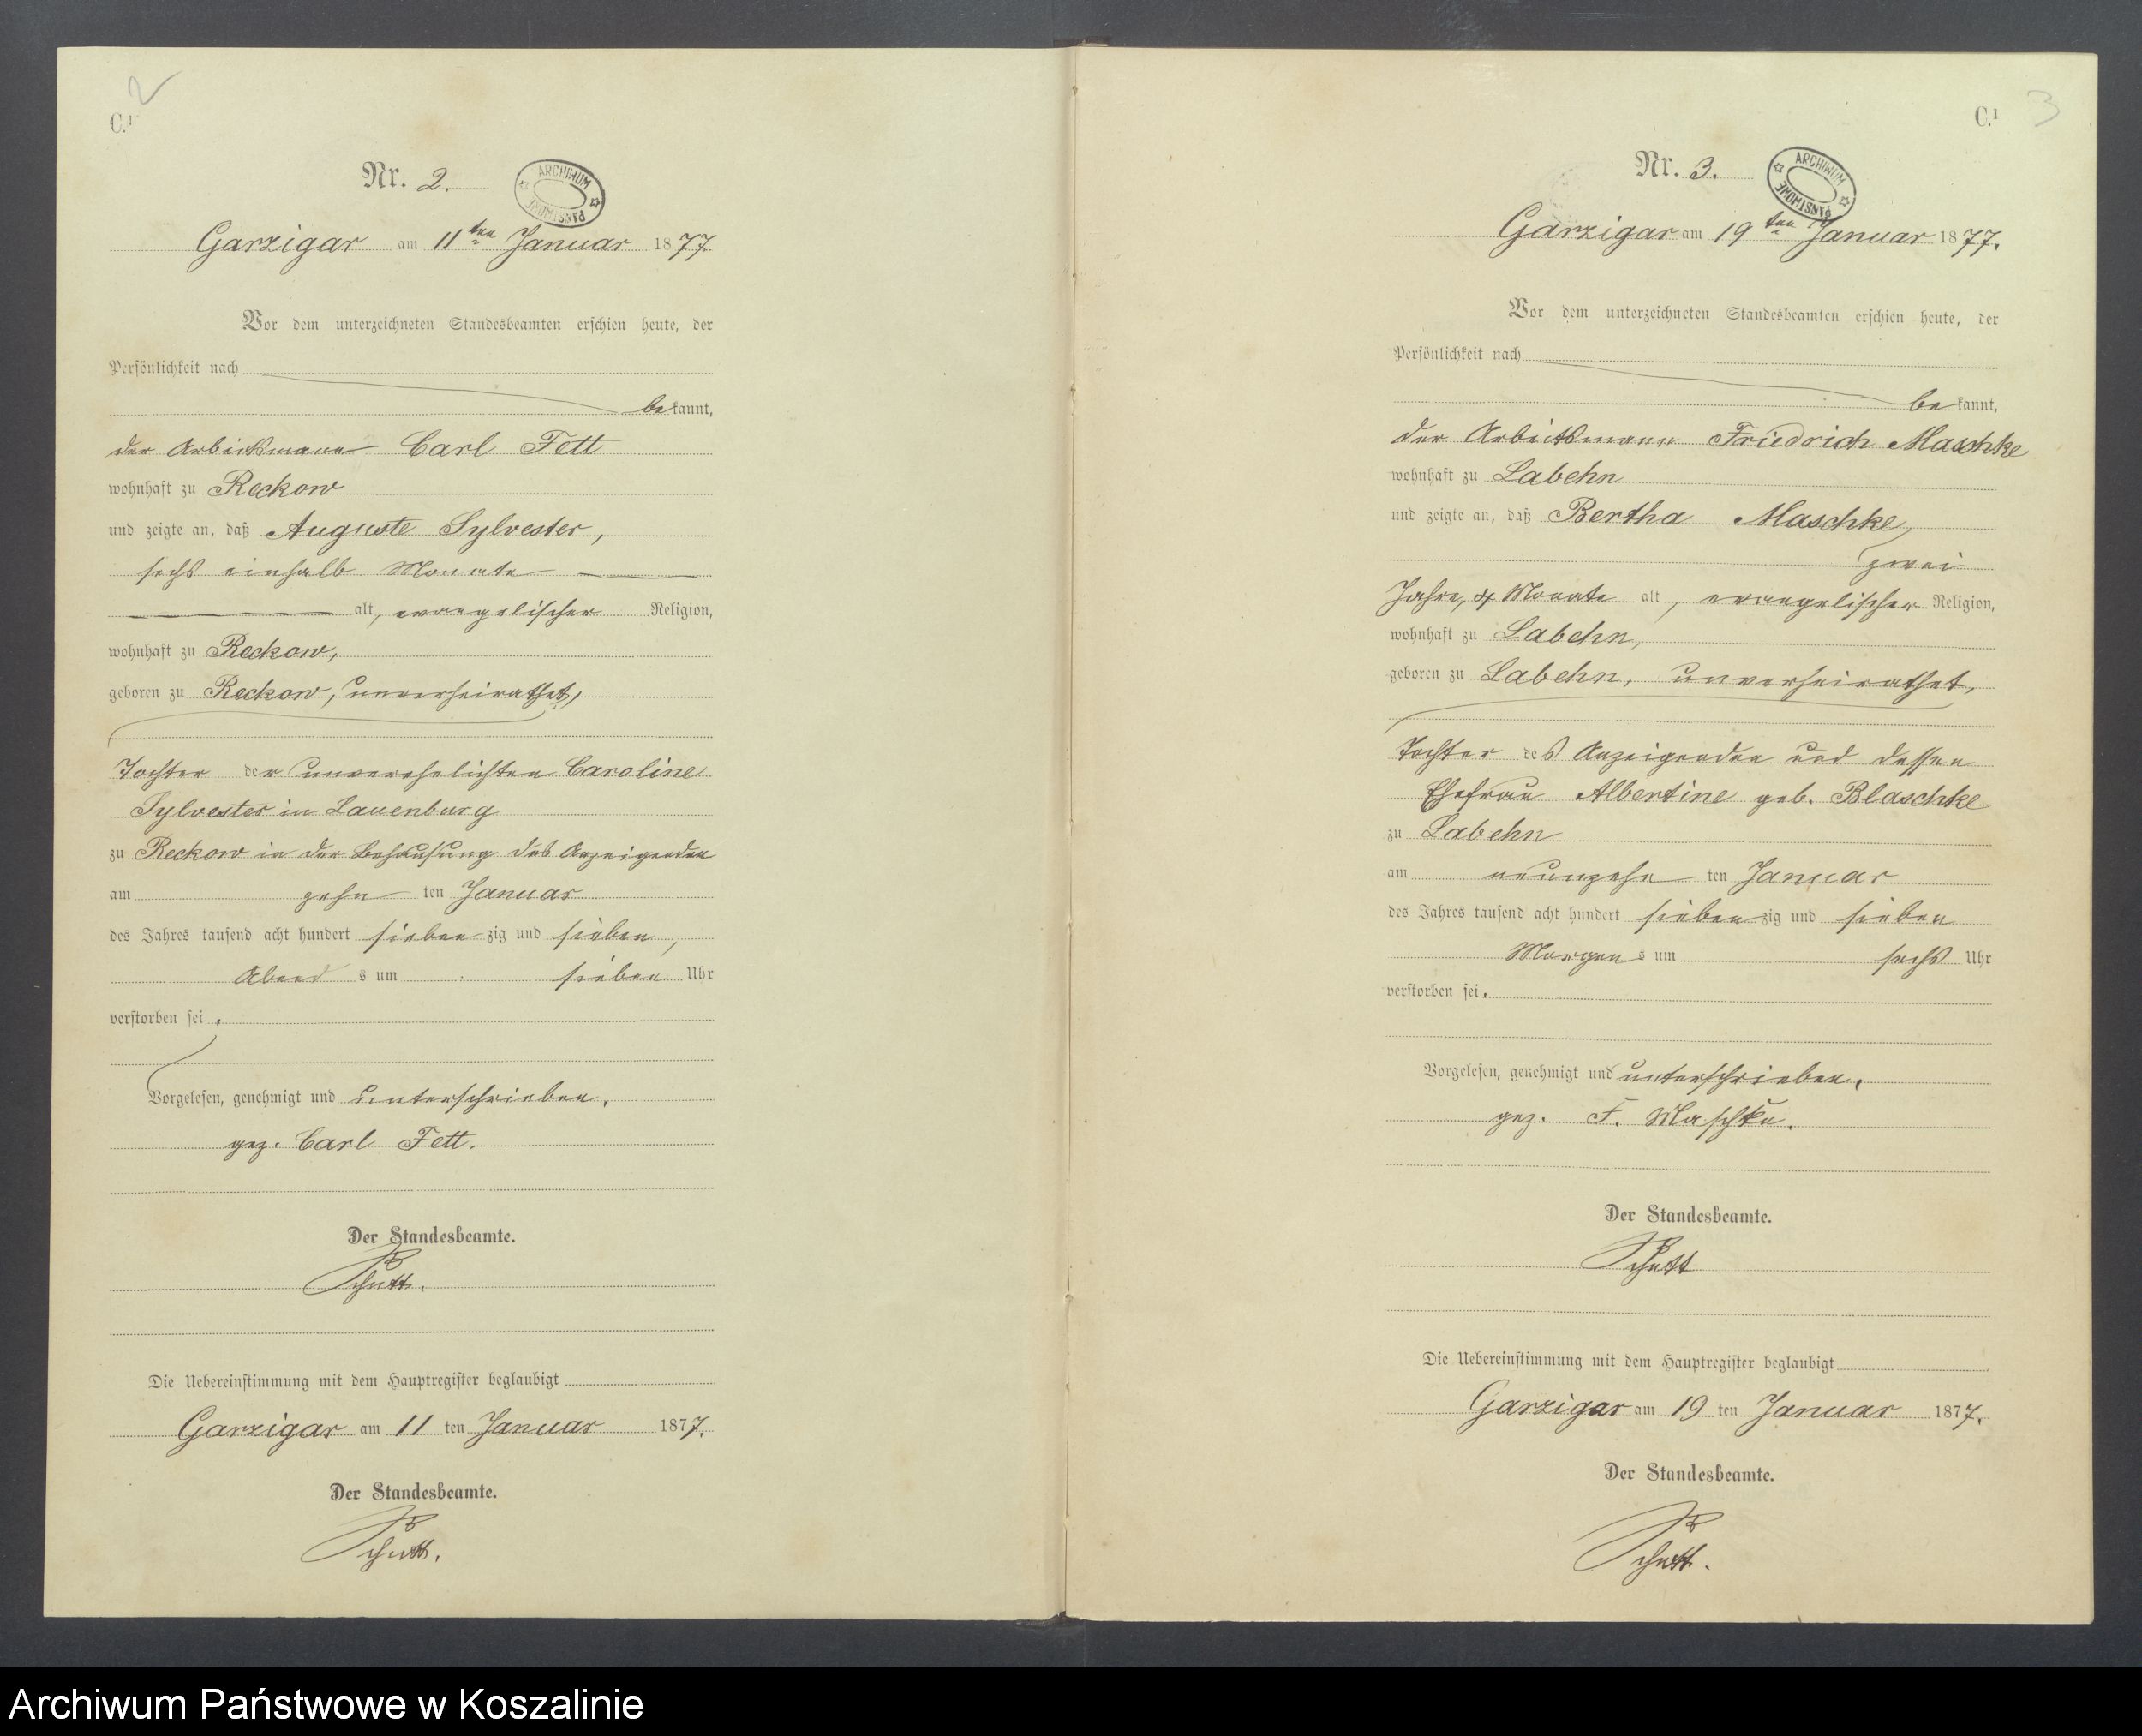 2
C.1
Nr. 2.
ARCHIWUM PAŃSTWOWE
Garzigar am 11ten Januar 1877
Vor dem unterzeichneten Standesbeamten erschien heute, der
Persönlichkeit nach
bekannt,
der Arbeitsmann Carl Fett
wohnhaft zu Reckow
und zeigte an, daß Auguste Sylvester,
sechs einhalb Monate
alt, evangelischer Religion,
wohnhaft zu Reckow,
geboren zu Reckow, unverheirathet,
Tochter der unverehelichten Caroline
Sylvester in Lauenburg
zu Reckow in der Behausung des Anzeigenden
am zehn ten Januar
des Jahres tausend acht hundert siebenzig und sieben,
Abends um sieben Uhr
verstorben sei.
Vorgelesen, genehmigt und unterschrieben.
gez. Carl Fett.
Der Standesbeamte.
Schutt.
Die Uebereinstimmung mit dem Hauptregister beglaubigt
Garzigar am 11 ten Januar 1877.
Der Standesbeamte.
Schutt.
C.1
3
Nr. 3.
ARCHIWUM PAŃSTWOWE
Garzigar am 19ten Januar 1877.
Vor dem unterzeichneten Standesbeamten erschien heute, der
Persönlichkeit nach
bekannt,
der Arbeitsmann Friedrich Maschke
wohnhaft zu Labehn
und zeigte an, daß Bertha Maschke,
zwei
Jahre, 4 Monate alt, evangelischer Religion,
wohnhaft zu Labehn,
geboren zu Labehn, unverheirathet,
Tochter des Anzeigenden und dessen
Ehefrau Albertine geb. Blaschke
zu Labehn
am neunzehn ten Januar
des Jahres tausend acht hundert siebenzig und sieben
Morgens um sechs Uhr
verstorben sei.
Vorgelesen, genehmigt und unterschrieben.
gez. F. Maschke.
Der Standesbeamte.
Schutt
Die Uebereinstimmung mit dem Hauptregister beglaubigt
Garzigar am 19 ten Januar 1877.
Der Standesbeamte.
Schutt.
Archiwum Państwowe w Koszalinie